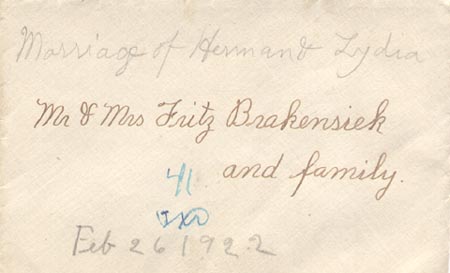 Marriage of Herman & Lydia
Mr & Mrs Fritz Brakensiek
and family.
41
Feb 26 1922